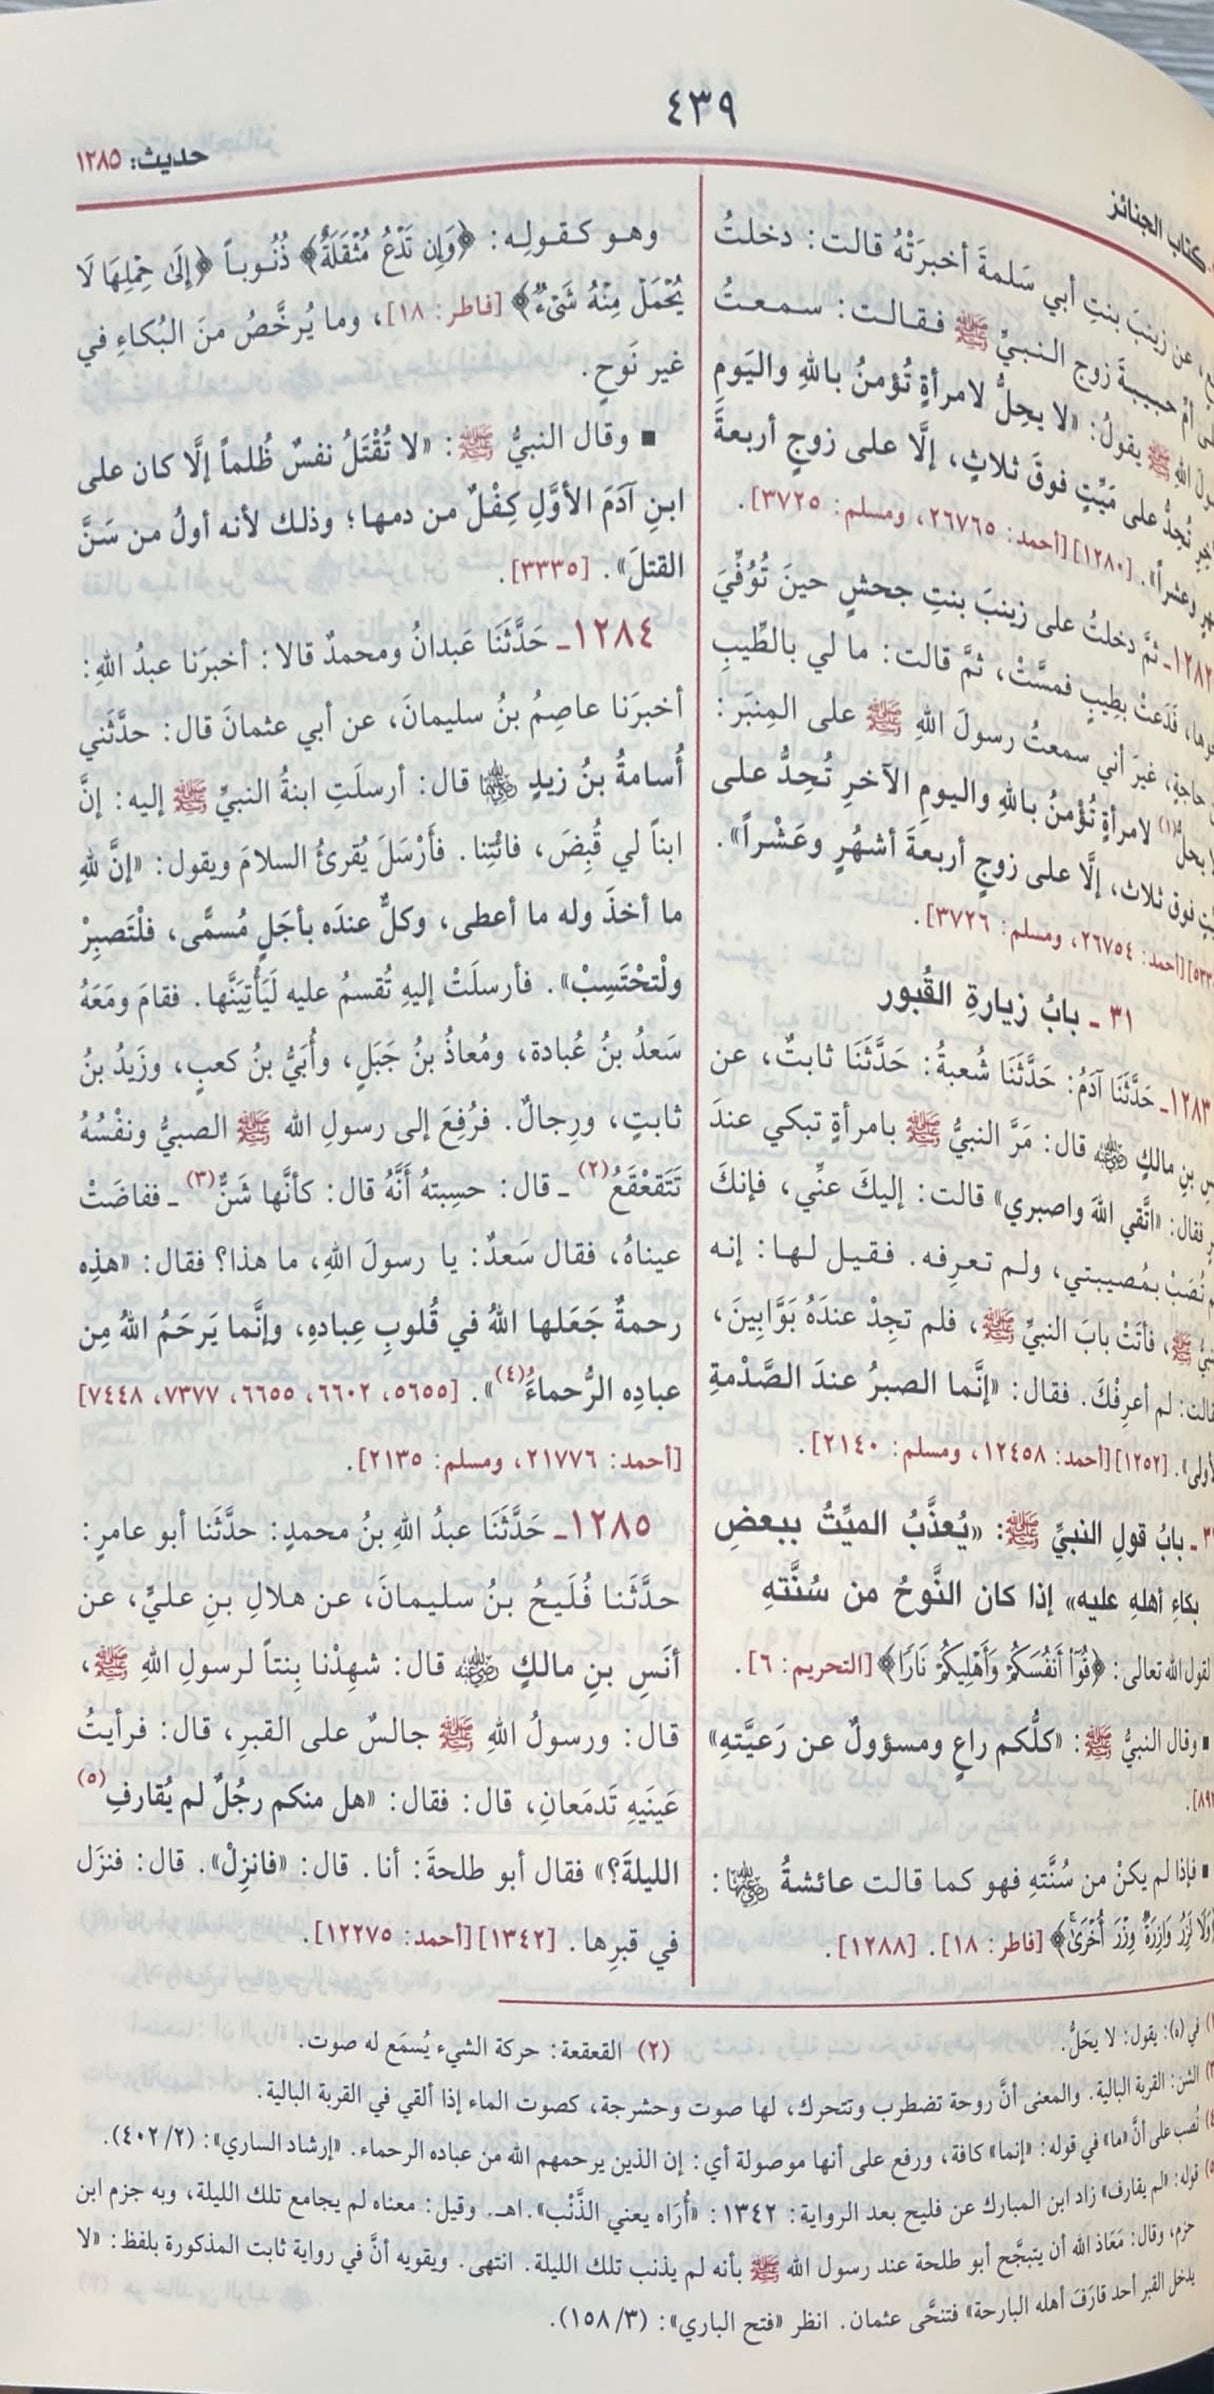 ٤٣٩
كتاب الجنائز
حديث: ١٢٨٥
عن زينبَ بنتِ أبي سَلمةَ أخبرَتْهُ قالت: دخلتُ
أمِّ حبيبةَ زوج النبيِّ ﷺ فقالت: سمعتُ
اللهِ ﷺ يقولُ: «لا يحِلُّ لامرأةٍ تُؤمنُ باللهِ واليَومِ
تُحِدُّ على مَيِّتٍ فوقَ ثلاثٍ، إلَّا على زوجٍ أربعةَ
وعشراً». [١٢٨٠] [أحمد: ٢٦٧٦٥، ومسلم: ٣٧٢٥].
١٢٨٢ـ ثمَّ دخلتُ على زينبَ بنتِ جحشٍ حينَ تُوُفِّيَ
فَدَعتْ بطِيبٍ فمسَّتْ، ثمَّ قالت: ما لي بالطِّيبِ
حاجةٍ، غيرَ أني سمعتُ رسولَ اللهِ ﷺ على المِنبَر:
يحلُّ(١) لامرأةٍ تُؤْمنُ باللهِ واليومِ الآخرِ تُحِدُّ على
فوق ثلاث، إلَّا على زوجٍ أربعةَ أشهُرٍ وعَشْراً».
[أحمد: ٢٦٧٥٤، ومسلم: ٣٧٢٦].
٣١ ـ بابُ زيارةِ القُبور
١٢٨٣ـ حَدَّثَنَا آدَمُ: حَدَّثَنَا شُعبةُ: حَدَّثَنَا ثابتٌ، عن
بنِ مالكٍ ﵁ قال: مَرَّ النبيُّ ﷺ بامرأةٍ تبكي عندَ
فقال: «اتَّقي اللهَ واصبري» قالت: إليكَ عنِّي، فإنكَ
تُصَبْ بمُصيبتي، ولم تعرِفه. فقيل لها: إنه
ﷺ، فأتَتْ بابَ النبيِّ ﷺ، فلم تجِدْ عندَهُ بَوَّابِينَ،
لم أعرِفْكَ. فقال: «إنَّما الصبرُ عندَ الصَّدْمةِ
[١٢٥٢] [أحمد: ١٢٤٥٨، ومسلم: ٢١٤٠].
بابُ قولِ النبيِّ ﷺ: «يُعذَّبُ الميِّتُ ببعضِ
بكاءِ أهلهِ عليه» إذا كان النَّوحُ من سُنَّتهِ
لقول الله تعالى: ﴿قُوٓا۟ أَنفُسَكُمْ وَأَهْلِيكُمْ نَارًا﴾ [التحريم: ٦].
▪ وقال النبيُّ ﷺ: «كلُّكم راعٍ ومسؤولٌ عن رَعيَّتهِ»
▪ فإذا لم يكنْ من سُنَّتهِ فهو كما قالت عائشةُ ﵂:
وَلَا تَزِرُ وَازِرَةٌ وِزْرَ أُخْرَىٰ﴾ [فاطر: ١٨]. [١٢٨٨].
وهو كقولِه: ﴿وَإِن تَدْعُ مُثْقَلَةٌ﴾ ذُنُوباً ﴿إِلَىٰ حِمْلِهَا لَا
يُحْمَلْ مِنْهُ شَىْءٌ﴾ [فاطر: ١٨]، وما يُرخَّصُ منَ البُكاءِ في
غير نَوحٍ.
▪ وقال النبيُّ ﷺ: «لا تُقْتَلُ نفسٌ ظُلماً إلَّا كان على
ابنِ آدَمَ الأوَّلِ كِفْلٌ من دمها؛ وذلك لأنه أولُ من سَنَّ
القتلَ». [٣٣٣٥].
١٢٨٤ـ حَدَّثَنَا عَبدانُ ومحمدٌ قالا: أخبرَنا عبدُ اللهِ:
أخبرَنا عاصِمُ بنُ سليمانَ، عن أبي عثمانَ قال: حدَّثَني
أُسامةُ بنُ زيدٍ ﵄ قال: أرسلَتِ ابنةُ النبيِّ ﷺ إليه: إنَّ
ابناً لي قُبِضَ، فائْتِنا. فأَرْسَلَ يُقرئُ السلامَ ويقول: «إنَّ للهِ
ما أخذَ وله ما أعطى، وكلٌّ عندَه بأجَلٍ مُسمًّى، فلْتَصبِرْ
ولْتحْتَسِبْ». فأرسلَتْ إليهِ تُقسمُ عليه لَيَأْتِيَنَّها. فقامَ ومَعَهُ
سَعدُ بنُ عُبادة، ومُعاذُ بنُ جَبَلٍ، وأُبَيُّ بنُ كعبٍ، وزَيدُ بنُ
ثابتٍ، ورِجالٌ. فرُفِعَ إلى رسولِ الله ﷺ الصبيُّ ونفْسُهُ
تَتَقعْقَعُ(٢) ـ قال: حسِبتهُ أَنَّهُ قال: كأنَّها شَنٌّ(٣) ـ ففاضَتْ
عيناهُ، فقال سَعدٌ: يا رسولَ اللهِ، ما هذا؟ فقال: «هذِه
رحمةٌ جَعَلها اللهُ في قُلوبِ عِبادِهِ، وإنَّما يَرحَمُ اللهُ مِن
عبادِه الرُّحماءَُ(٤)». [٥٦٥٥، ٦٦٠٢، ٦٦٥٥، ٧٣٧٧، ٧٤٤٨]
[أحمد: ٢١٧٧٦، ومسلم: ٢١٣٥].
١٢٨٥ـ حَدَّثَنَا عبدُ اللهِ بنُ محمدٍ: حدَّثَنا أبو عامرٍ:
حدَّثَنا فُلَيحُ بنُ سليمانَ، عن هلالِ بنِ عليٍّ، عن
أنَسِ بنِ مالكٍ ﵁ قال: شهِدْنا بِنتاً لرسولِ اللهِ ﷺ،
قال: ورسولُ اللهِ ﷺ جالسٌ على القبرِ، قال: فرأيتُ
عَينَيهِ تَدمَعانِ، قال: فقال: «هل منكم رجُلٌ لم يُقارفِ(٥)
الليلةَ؟» فقال أبو طلحةَ: أنا. قال: «فانزِلْ». قال: فنزَل
في قبرِها. [١٣٤٢] [أحمد: ١٢٢٧٥].
في (ه): يقول: لا يحَلُّ.
(٢) القعقعة: حركة الشيء يُسمَع له صوت.
الشن: القربة البالية. والمعنى أنَّ روحة تضطرب وتتحرك، لها صوت وحشرجة، كصوت الماء إذا ألقي في القربة البالية.
نُصب على أنَّ «ما» في قوله: «إنما» كافة، ورفع على أنها موصولة أي: إن الذين يرحمهم الله من عباده الرحماء. «إرشاد الساري»: (٤٠٢/٢).
قوله: «لم يقارف» زاد ابن المبارك عن فليح بعد الرواية: ١٣٤٢: «أُرَاه يعني الذَّنْب». اهـ. وقيل: معناه لم يجامع تلك الليلة، وبه جزم ابن
حزم، وقال: مَعَاذ الله أن يتبجَّح أبو طلحة عند رسول الله ﷺ بأنه لم يذنب تلك الليلة. انتهى. ويقويه أنَّ في رواية ثابت المذكورة بلفظ: «لا
يدخل القبر أحد قارَفَ أهله البارحة» فتنحَّى عثمان. انظر «فتح الباري»: (١٥٨/٣).